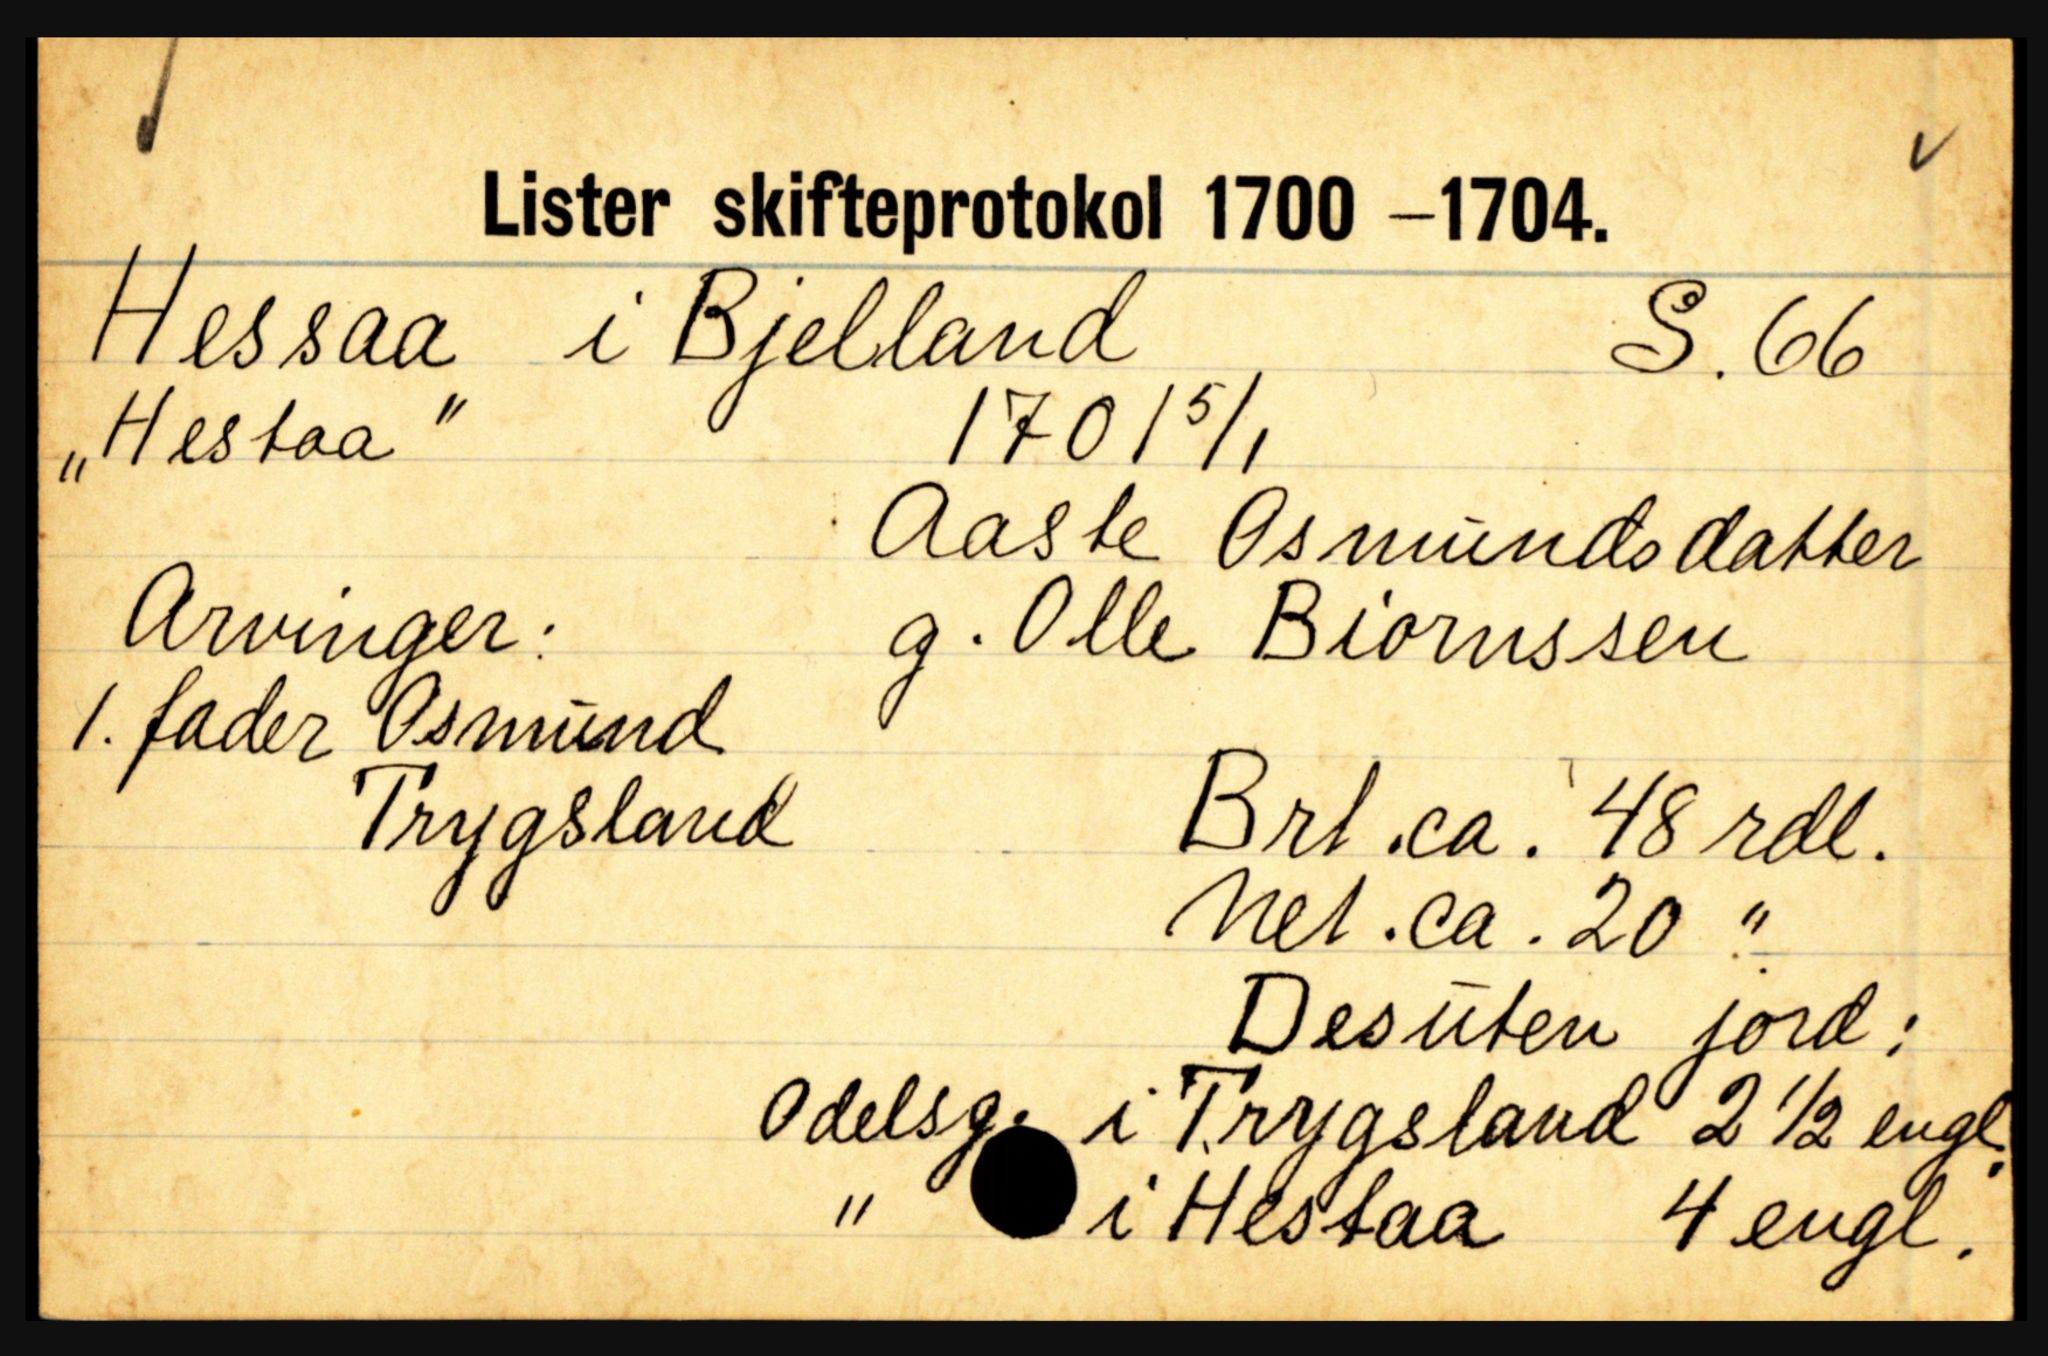 Lister skifteprotokol 1700 – 1704.
Hessaa i Bjelland S. 66
„Hestaa" 1701 5/1
Aaste Osmundsdatter
Arvinger: g. Olle Biornssen
1. fader Osmund
Trygsland Brt. ca. 48 rdl.
Net. ca. 20 "
Desuten jord:
Odelsg. i Trygsland 2 1/2 engl.
" i Hestaa 4 engl.